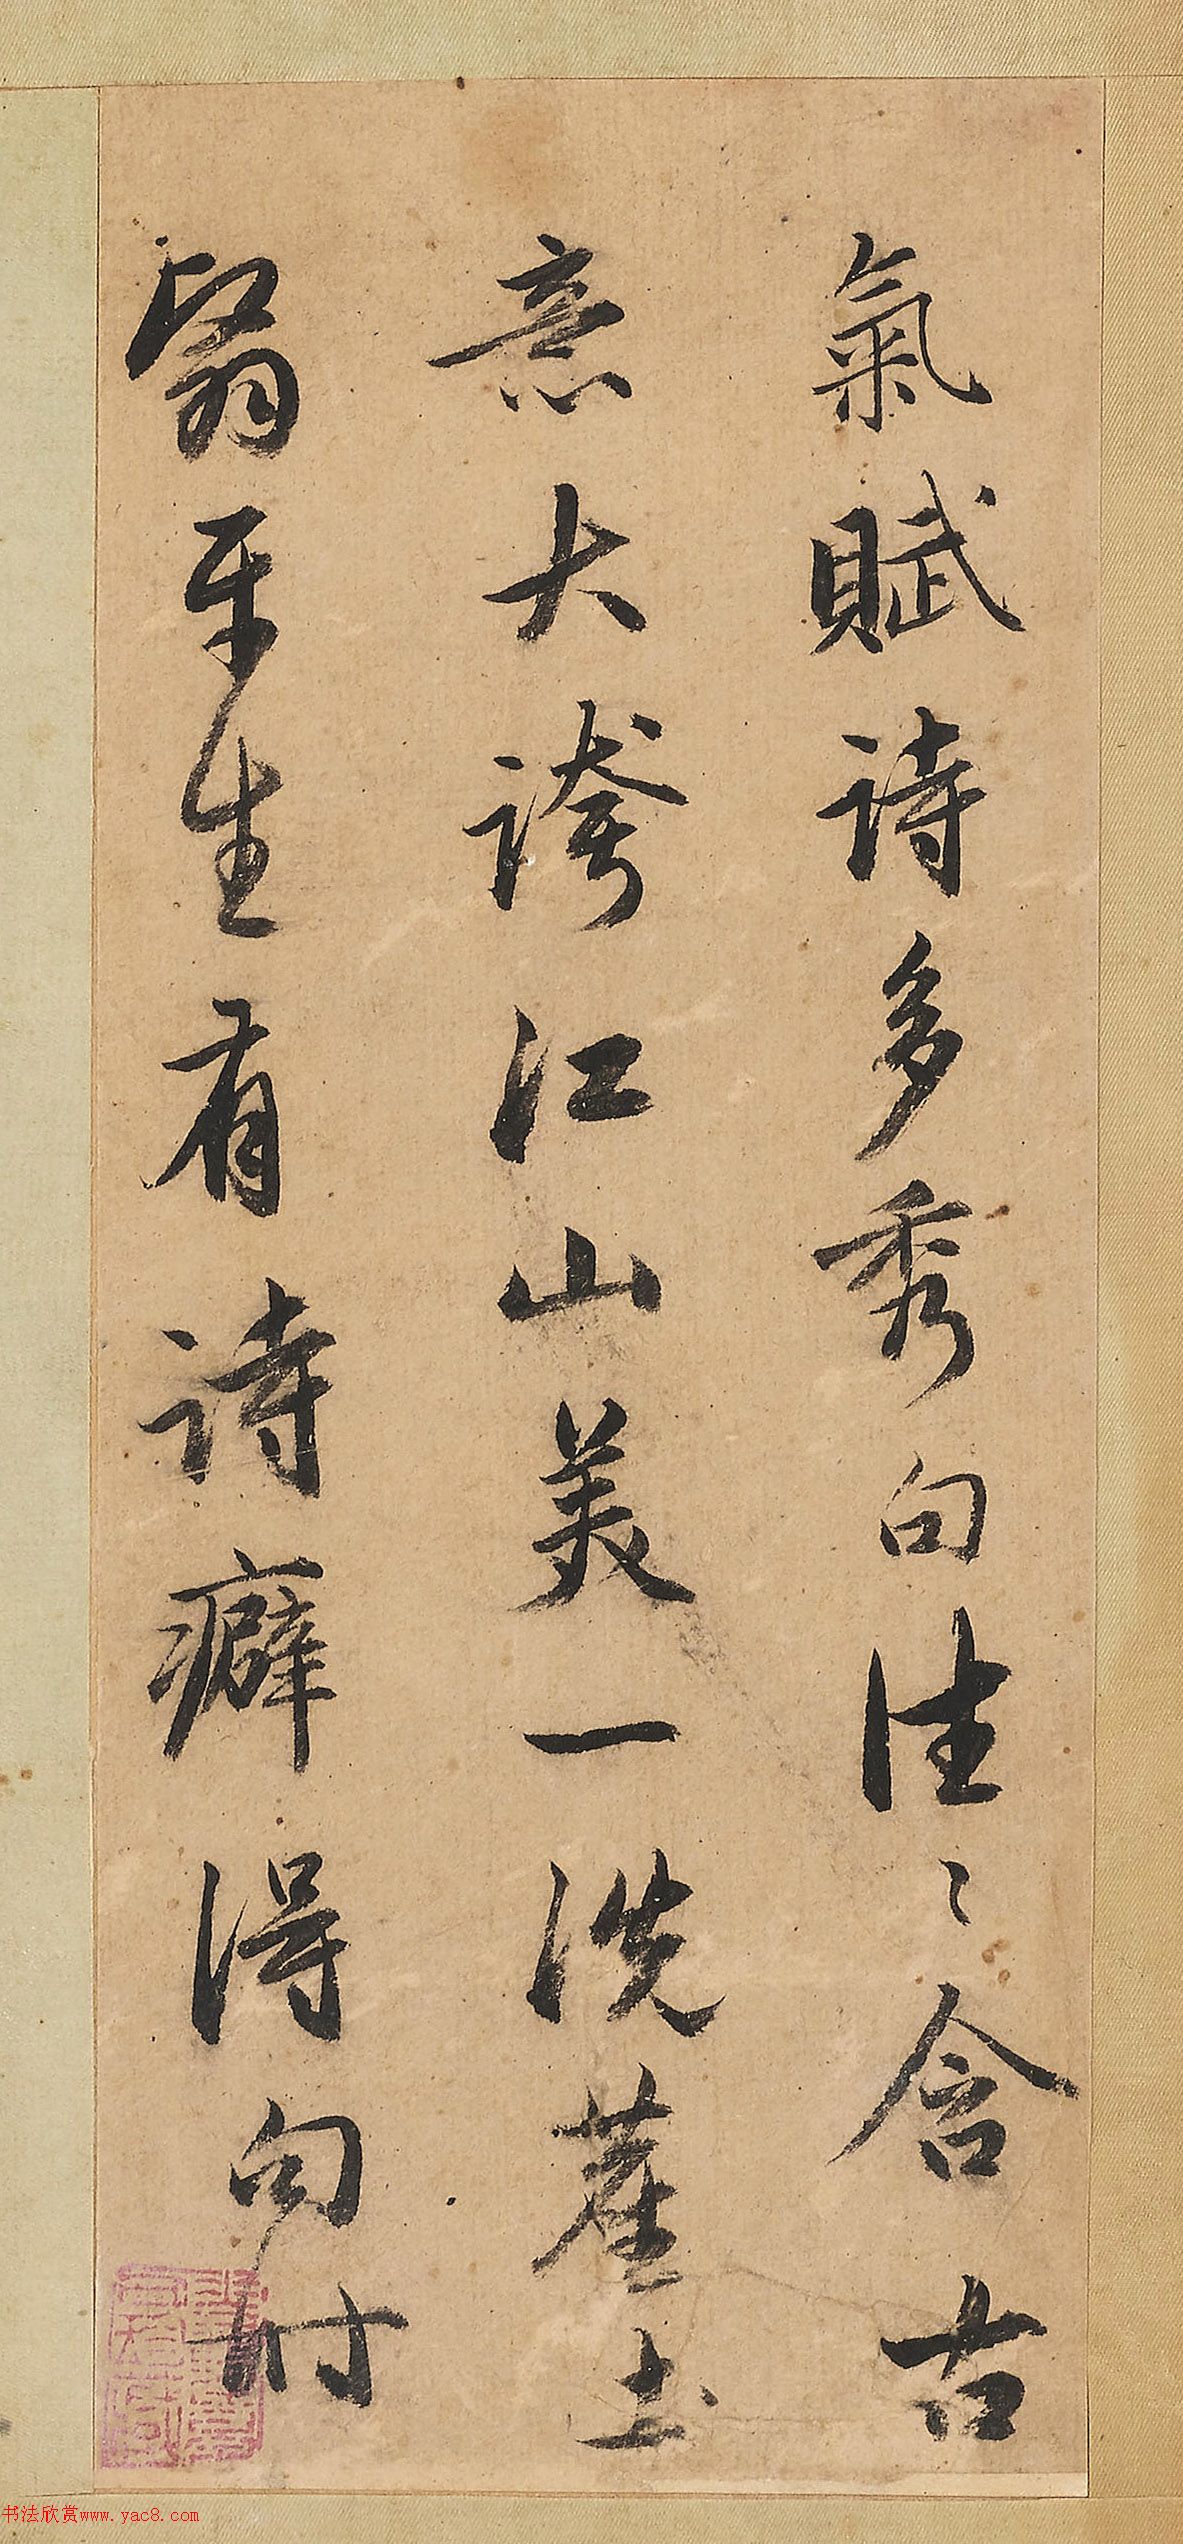 氣賦詩多秀句往〻含古
意大誇江山美一洗崔土
翳平生有詩癖得句時
书法欣赏www.yac8.com